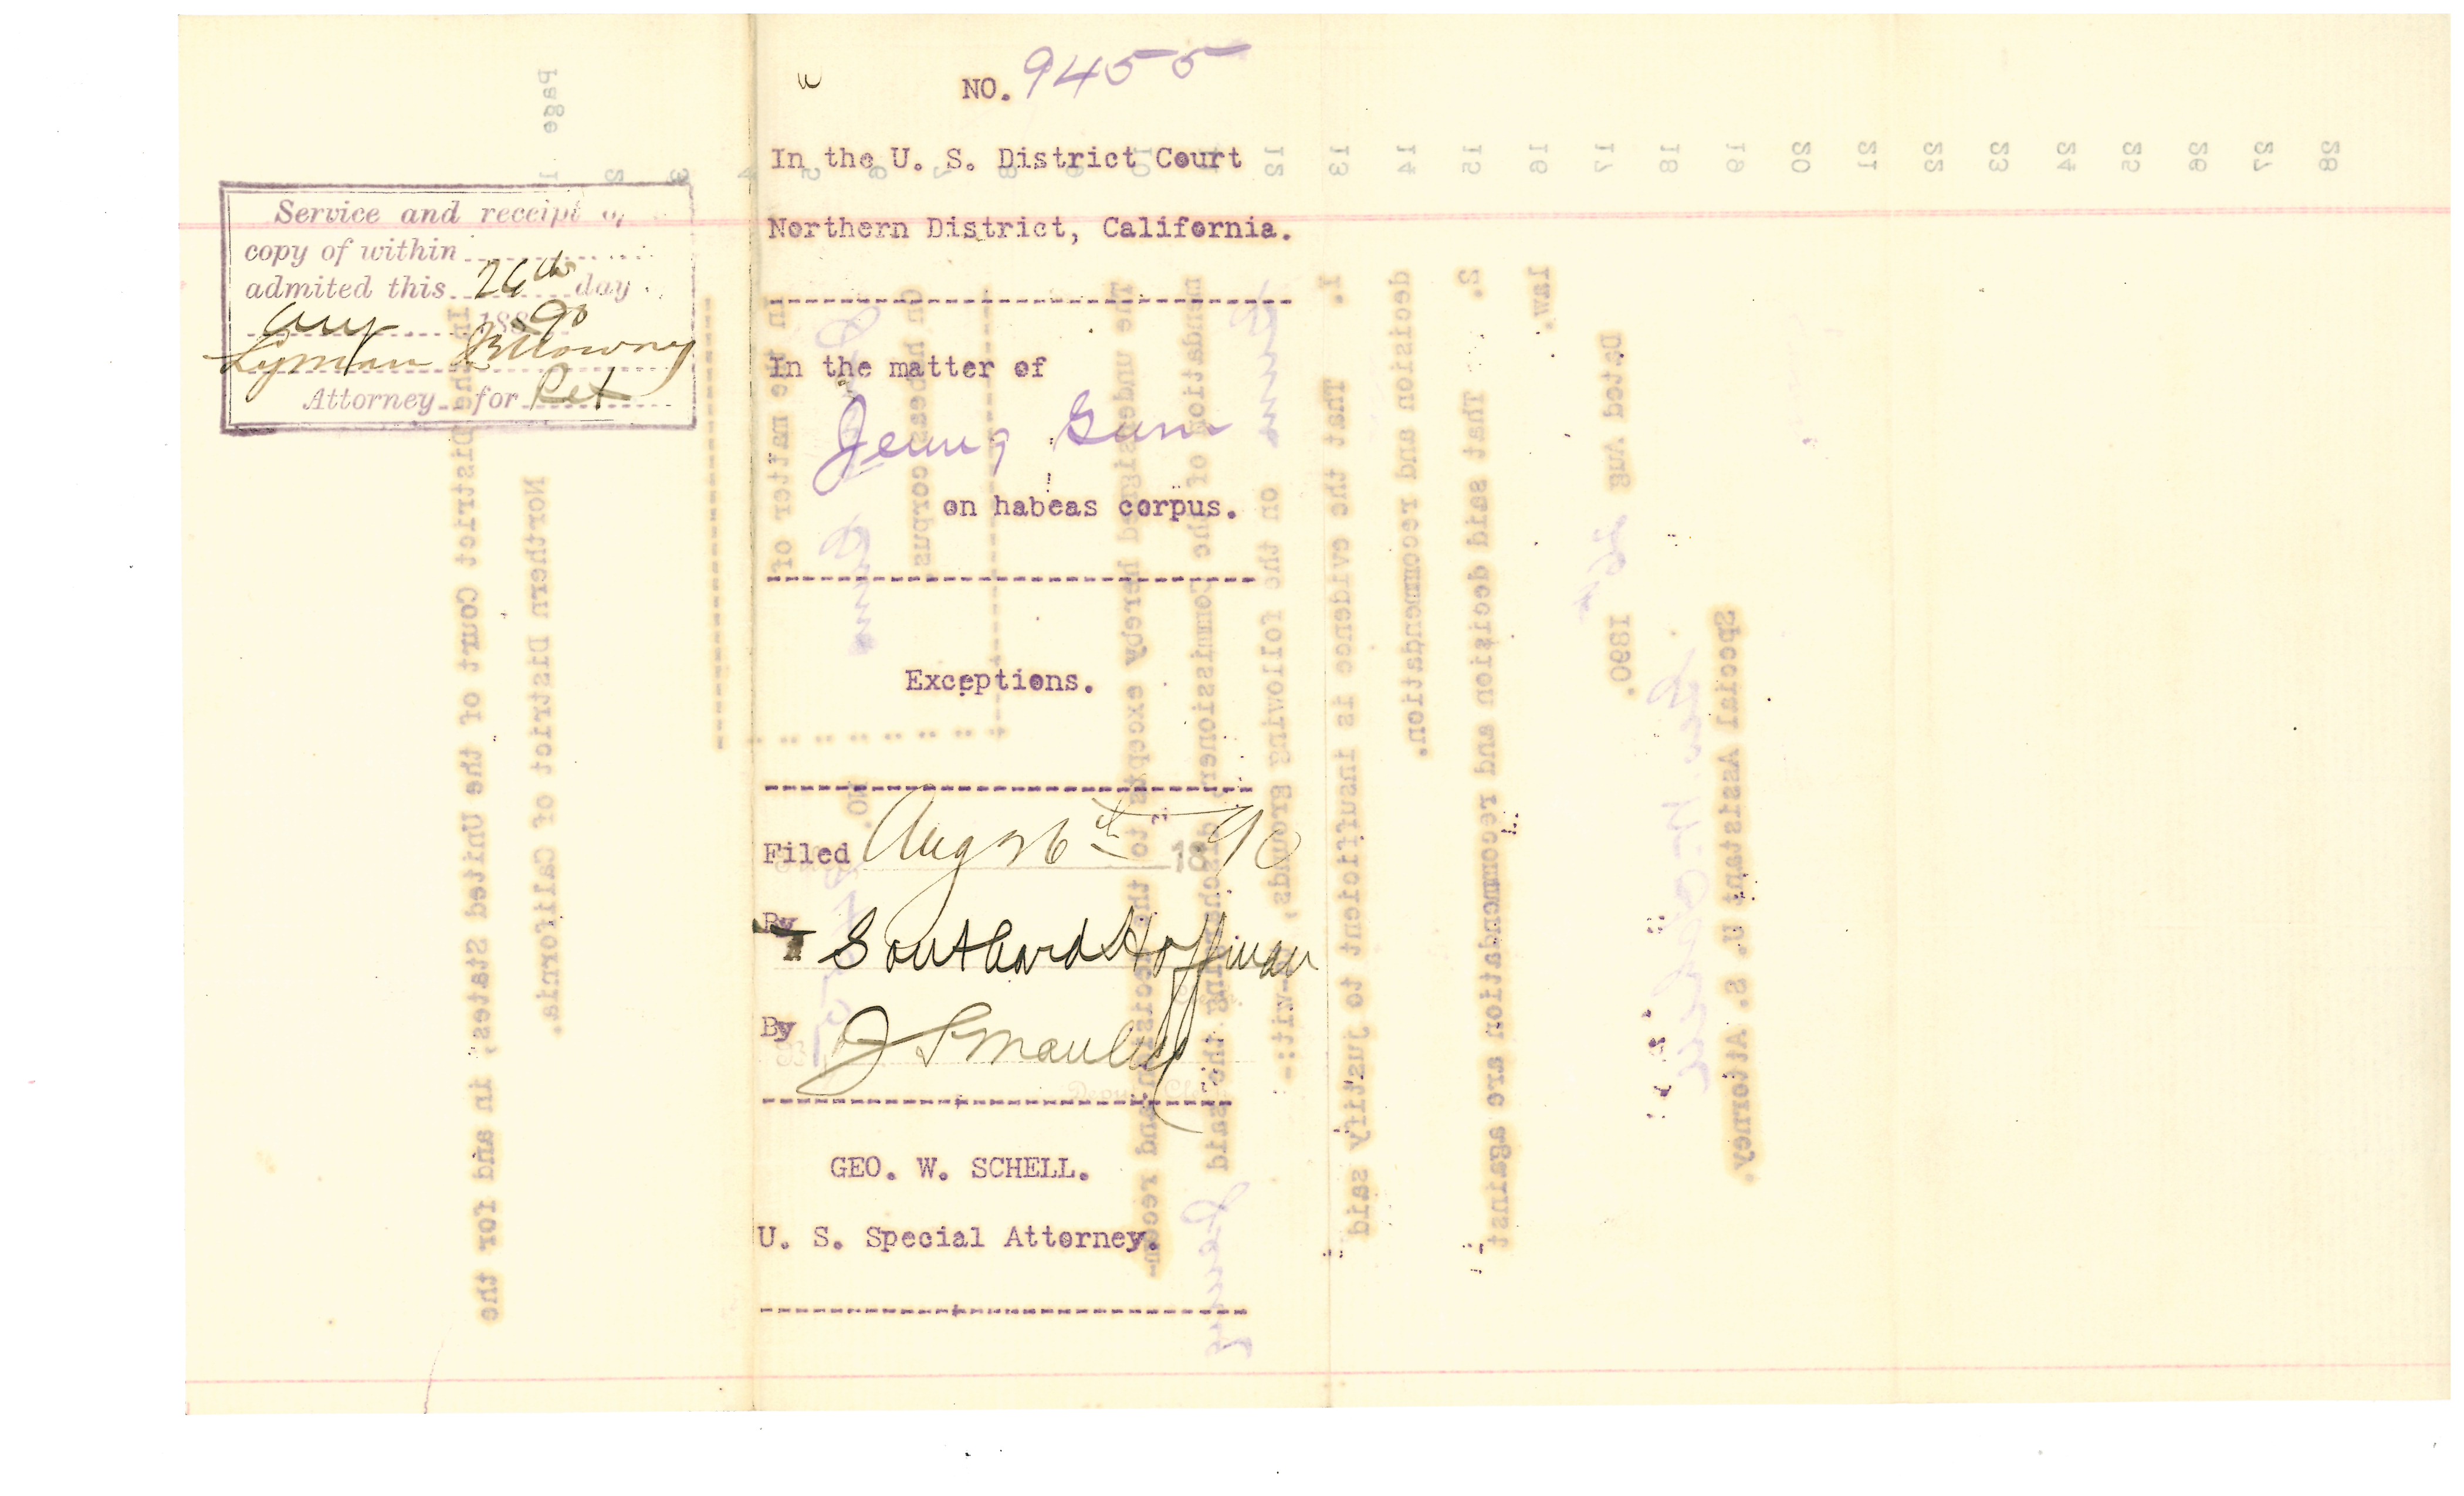 NO. 9455
In the U. S. District Court
Northern District, California.
In the matter of
Jeung Gum
on habeas corpus.
Exceptions.
Filed Aug 26th 1890
By
Southard Hoffman
By J S Manley
GEO. W. SCHELL.
U. S. Special Attorney.
Service and receipt of
copy of within
admited this 26th day
Aug 1890
Lyman I Mowry
Attorney for Pet
Page 1
2
3
4
5
6
7
8
9
10
12
13
14
15
16
17
18
19
20
21
22
23
24
25
26
27
28
In the District Court of the United States, in and for the
Northern District of California.
In the matter of
On habeas corpus
NO.
The undersigned hereby excepts to the decision and recom-
mendation of the Commissioner discharging the said Jeung
on the following grounds, to-wit:-
1. That the evidence is insufficient to justify said
decision and recommendation.
2. That said decision and recommendation are against
law.
Dated Aug 26th 1890.
Special Assistant U. S. Attorney.